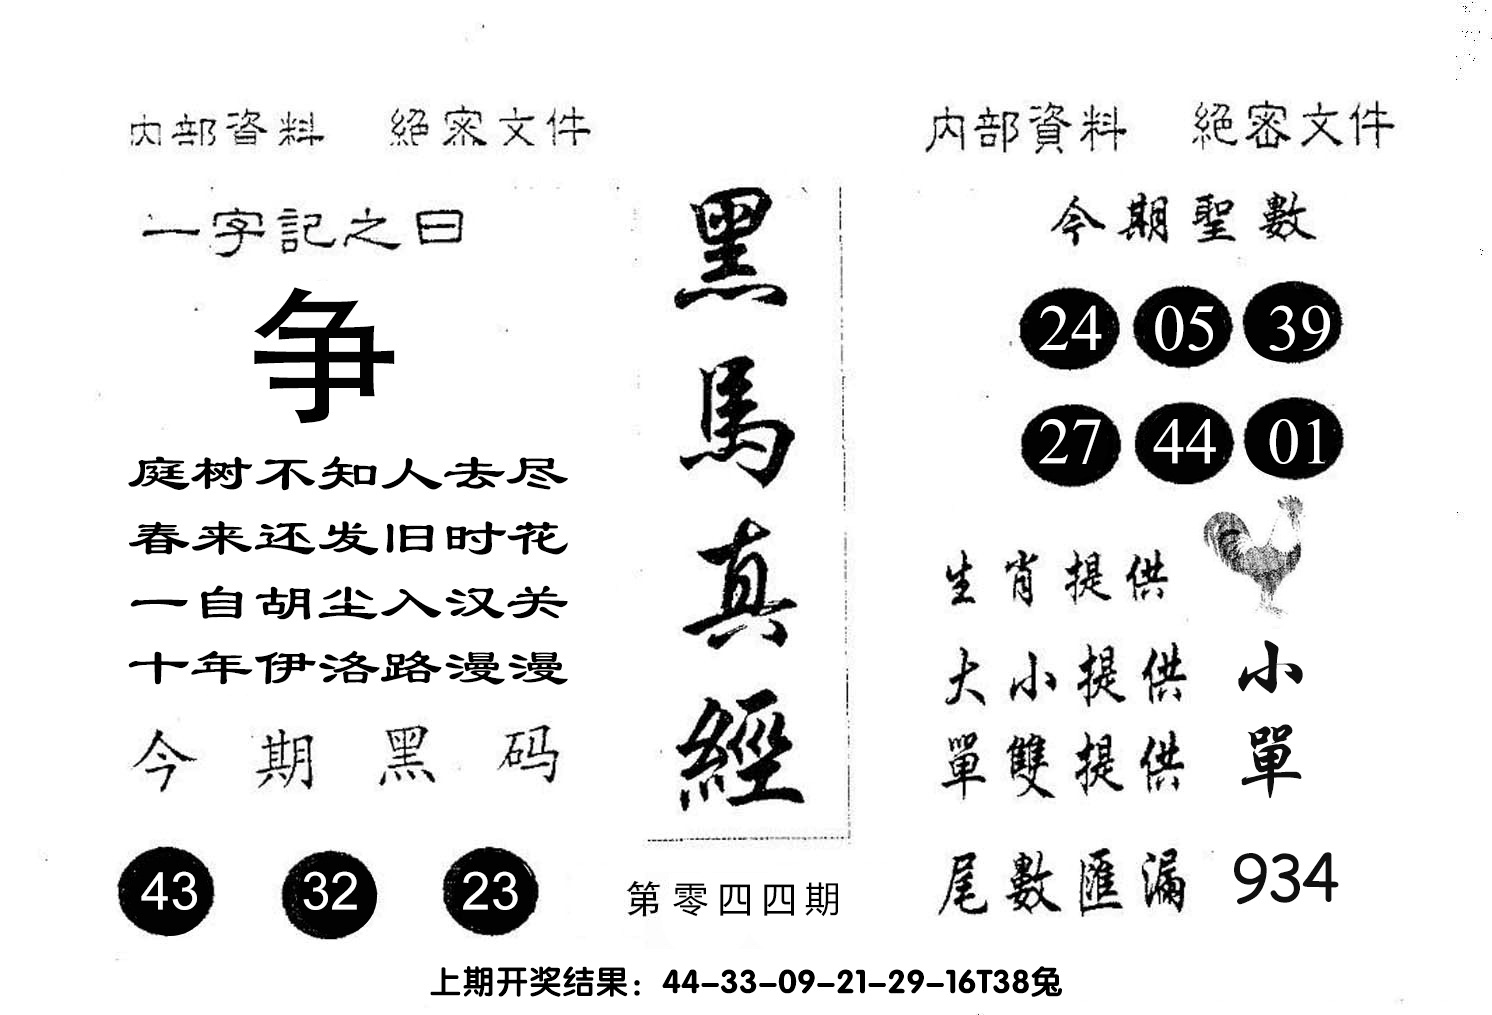 内部資料 絕密文件
一字記之曰
争
庭树不知人去尽
春来还发旧时花
一自胡尘入汉关
十年伊洛路漫漫
今期黑码
43 32 23
黑馬真經
第零四四期
内部資料 絕密文件
今期聖數
24 05 39
27 44 01
生肖提供
大小提供 小
單雙提供 單
尾數匯漏 934
上期开奖结果：44-33-09-21-29-16T38兔